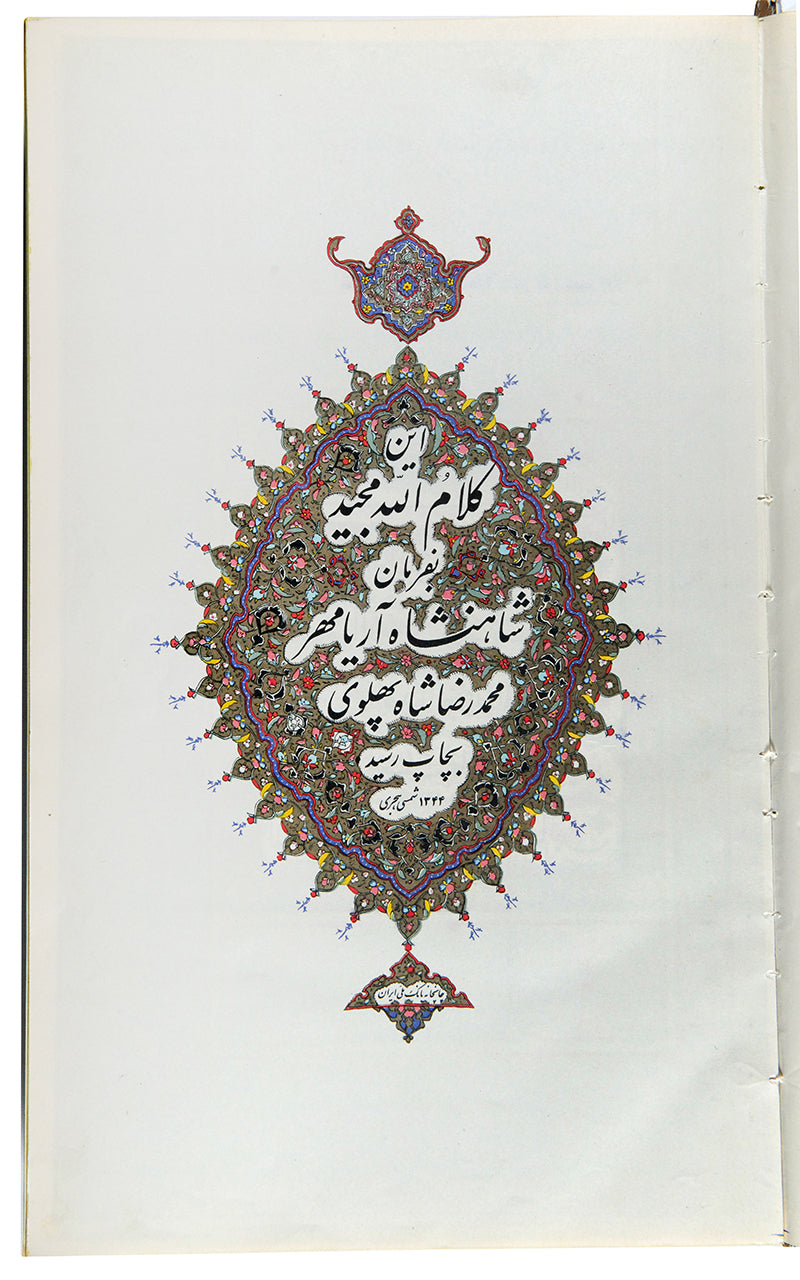 این
کلامُ اللّه مجید
بفرمان
شاهنشاه آریامهر
محمد رضا شاه پهلوی
بچاپ رسید
۱۳۴۴ شمسی هجری
چاپخانه بانک ملی ایران